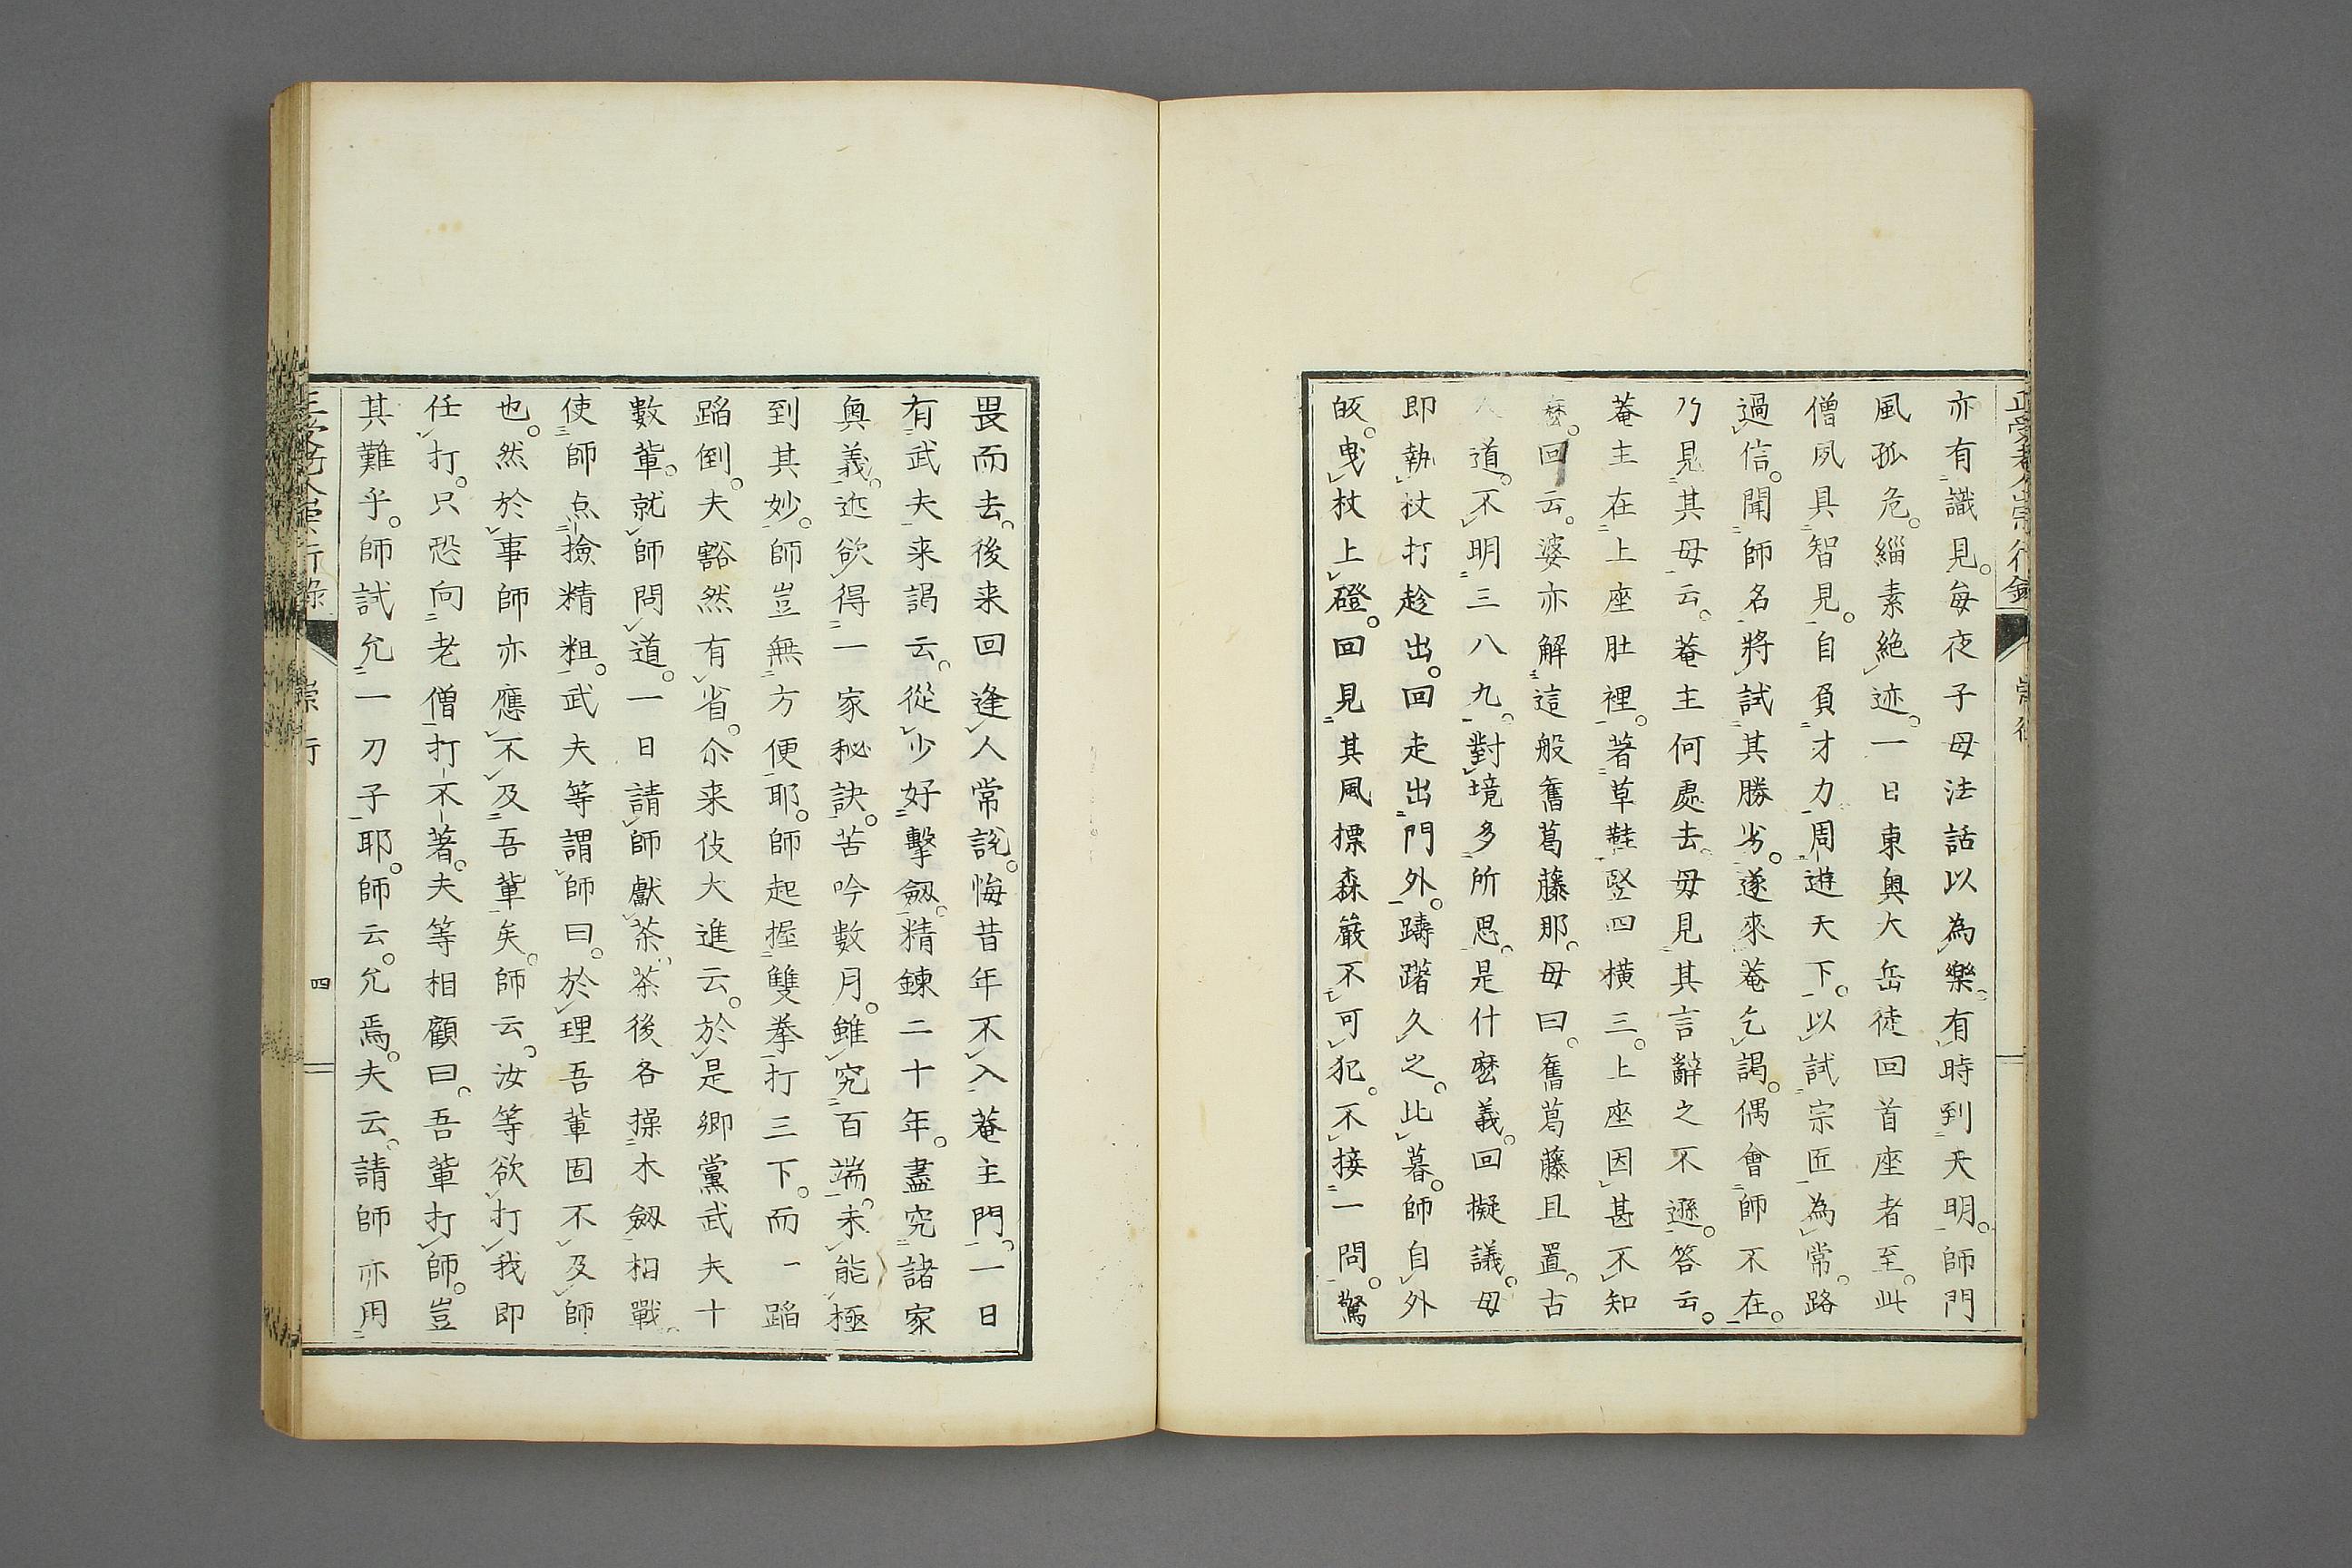 亦有識見。毎夜子母法話以為樂。有時到天明。師門
風孤危。緇素絶迹。一日東奥大岳徒回首座者至。此
僧夙具智見。自負才力。周遊天下。以試宗匠為常。路
過信。聞師名。將試其勝劣。遂來菴乞謁。偶會師不在。
乃見其母云。菴主何處去。毋見其言辭之不遜。答云。
菴主在上座肚裡。著草鞋竪四横三。上座因甚不知
麼。回云。婆亦解這般舊葛藤那。毋曰。舊葛藤且置。古
人道。不明三八九。對境多所思。是什麼義。回擬議。毋
即執杖打趁出。回走出門外。躊躇久之。此暮。師自外
皈。曳杖上磴。回見其風標森嚴不可犯。不接一問。驚
畏而去。後来回逢人常說。悔昔年不入菴主門。一日
有武夫来謁云。從少好擊劔。精鍊二十年。盡究諸家
奥義。近欲得一家秘訣。苦吟數月。雖究百端。未能極
到其妙。師豈無方便耶。師起握雙拳打三下。而一蹈
蹈倒。夫豁然有省。尒来伎大進云。於是郷黨武夫十
數輩。就師問道。一日請師獻茶。茶後各操木劔相戰。
使師点撿精粗。武夫等謂師曰。於理吾輩固不及師
也。然於事師亦應不及吾輩矣。師云。汝等欲打我即
任打。只恐向老僧打不著。夫等相顧曰。吾輩打師。豈
其難乎。師試允一刀子耶。師云。允焉。夫云。請師亦用
崇行
四